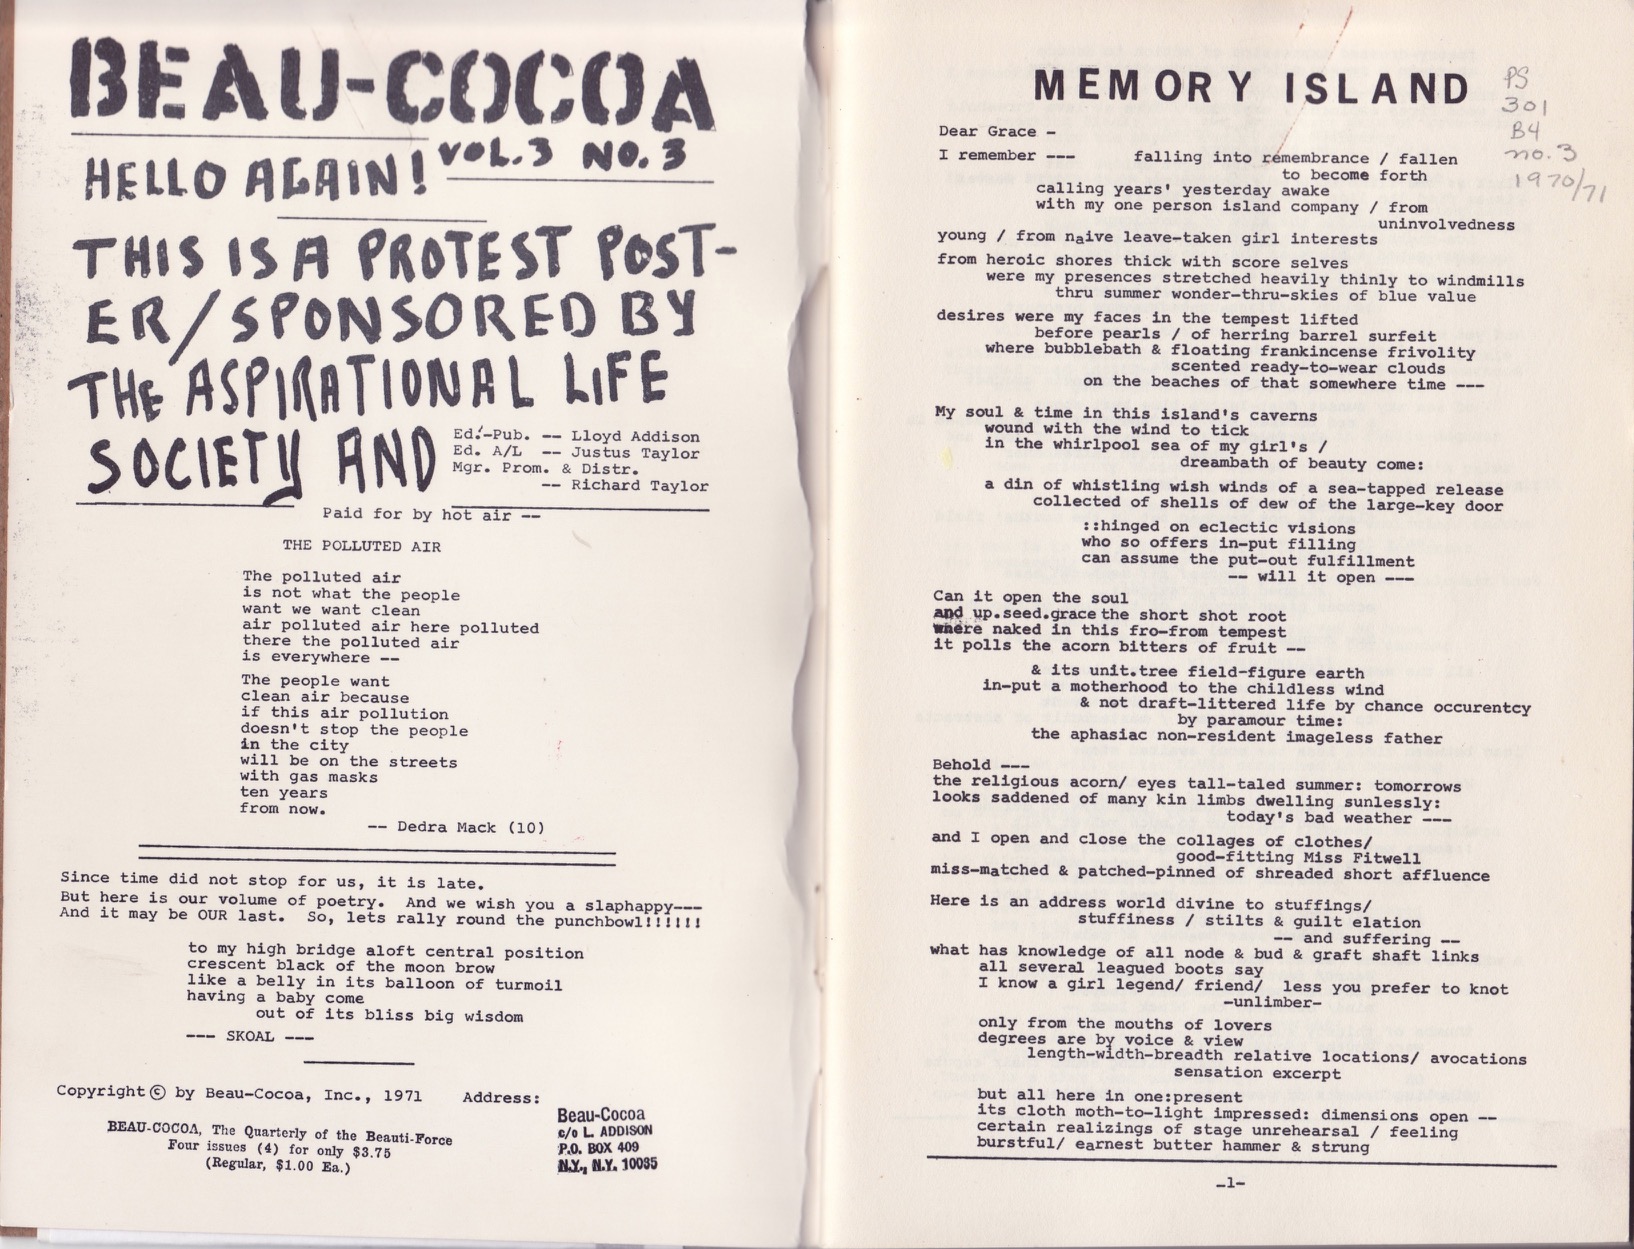 BEAU-COCOA
HELLO AGAIN! VOL.3 NO.3
THIS IS A PROTEST POST-
ER/SPONSORED BY
THE ASPIRATIONAL LIFE
SOCIETY AND
Ed.-Pub. -- Lloyd Addison
Ed. A/L -- Justus Taylor
Mgr. Prom. & Distr.
-- Richard Taylor
Paid for by hot air --
THE POLLUTED AIR
The polluted air
is not what the people
want we want clean
air polluted air here polluted
there the polluted air
is everywhere --
The people want
clean air because
if this air pollution
doesn't stop the people
in the city
will be on the streets
with gas masks
ten years
from now.
-- Dedra Mack (10)
Since time did not stop for us, it is late.
But here is our volume of poetry. And we wish you a slaphappy---
And it may be OUR last. So, lets rally round the punchbowl!!!!!!
to my high bridge aloft central position
crescent black of the moon brow
like a belly in its balloon of turmoil
having a baby come
out of its bliss big wisdom
--- SKOAL ---
Copyright © by Beau-Cocoa, Inc., 1971 Address:
BEAU-COCOA, The Quarterly of the Beauti-Force
Four issues (4) for only $3.75
(Regular, $1.00 Ea.)
Beau-Cocoa
c/o L. ADDISON
P.O. BOX 409
N.Y., N.Y. 10035
MEMORY ISLAND
PS
301
B4
no.3
1970/71
Dear Grace -
I remember --- falling into remembrance / fallen
to become forth
calling years' yesterday awake
with my one person island company / from
uninvolvedness
young / from naive leave-taken girl interests
from heroic shores thick with score selves
were my presences stretched heavily thinly to windmills
thru summer wonder-thru-skies of blue value
desires were my faces in the tempest lifted
before pearls / of herring barrel surfeit
where bubblebath & floating frankincense frivolity
scented ready-to-wear clouds
on the beaches of that somewhere time ---
My soul & time in this island's caverns
wound with the wind to tick
in the whirlpool sea of my girl's /
dreambath of beauty come:
a din of whistling wish winds of a sea-tapped release
collected of shells of dew of the large-key door
::hinged on eclectic visions
who so offers in-put filling
can assume the put-out fulfillment
-- will it open ---
Can it open the soul
and up.seed.grace the short shot root
where naked in this fro-from tempest
it polls the acorn bitters of fruit --
& its unit.tree field-figure earth
in-put a motherhood to the childless wind
& not draft-littered life by chance occurentcy
by paramour time:
the aphasiac non-resident imageless father
Behold ---
the religious acorn/ eyes tall-taled summer: tomorrows
looks saddened of many kin limbs dwelling sunlessly:
today's bad weather ---
and I open and close the collages of clothes/
good-fitting Miss Fitwell
miss-matched & patched-pinned of shreaded short affluence
Here is an address world divine to stuffings/
stuffiness / stilts & guilt elation
-- and suffering --
what has knowledge of all node & bud & graft shaft links
all several leagued boots say
I know a girl legend/ friend/ less you prefer to knot
-unlimber-
only from the mouths of lovers
degrees are by voice & view
length-width-breadth relative locations/ avocations
sensation excerpt
but all here in one:present
its cloth moth-to-light impressed: dimensions open --
certain realizings of stage unrehearsal / feeling
burstful/ earnest butter hammer & strung
-1-